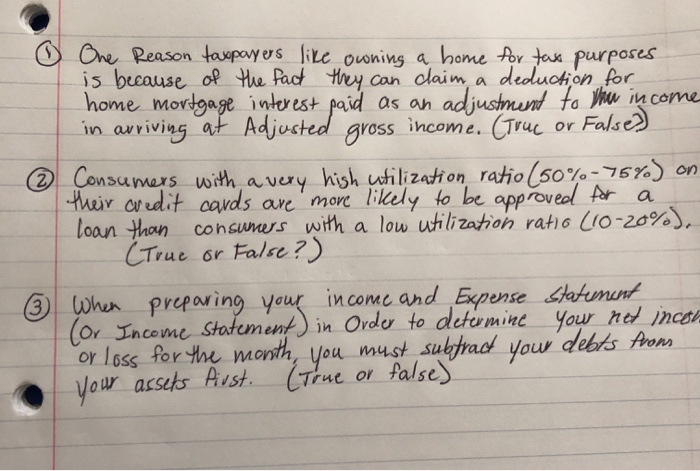 ① One Reason taxpayers like owning a home for tax purposes
is because of the fact they can claim a deduction for
home mortgage interest paid as an adjustment to income
in arriving at Adjusted gross income. (True or False?)
② Consumers with a very high utilization ratio (50%-75%) on
their credit cards are more likely to be approved for a
loan than consumers with a low utilization ratio (10-20%).
(True or False?)
③ When preparing your income and Expense Statement
(or Income Statement) in Order to determine your net incom
or loss for the month, you must subtract your debts from
your assets first. (True or false)